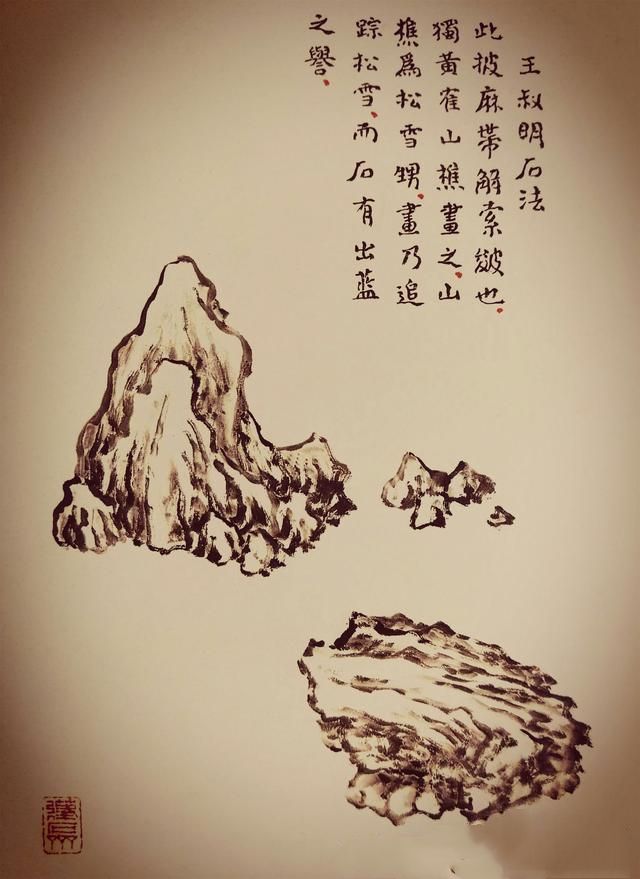 王叔明石法
此披麻帶解索皴也
獨黃崔山樵畫之山
樵爲松雪甥畫乃追
踪松雪而石有出藍
之譽